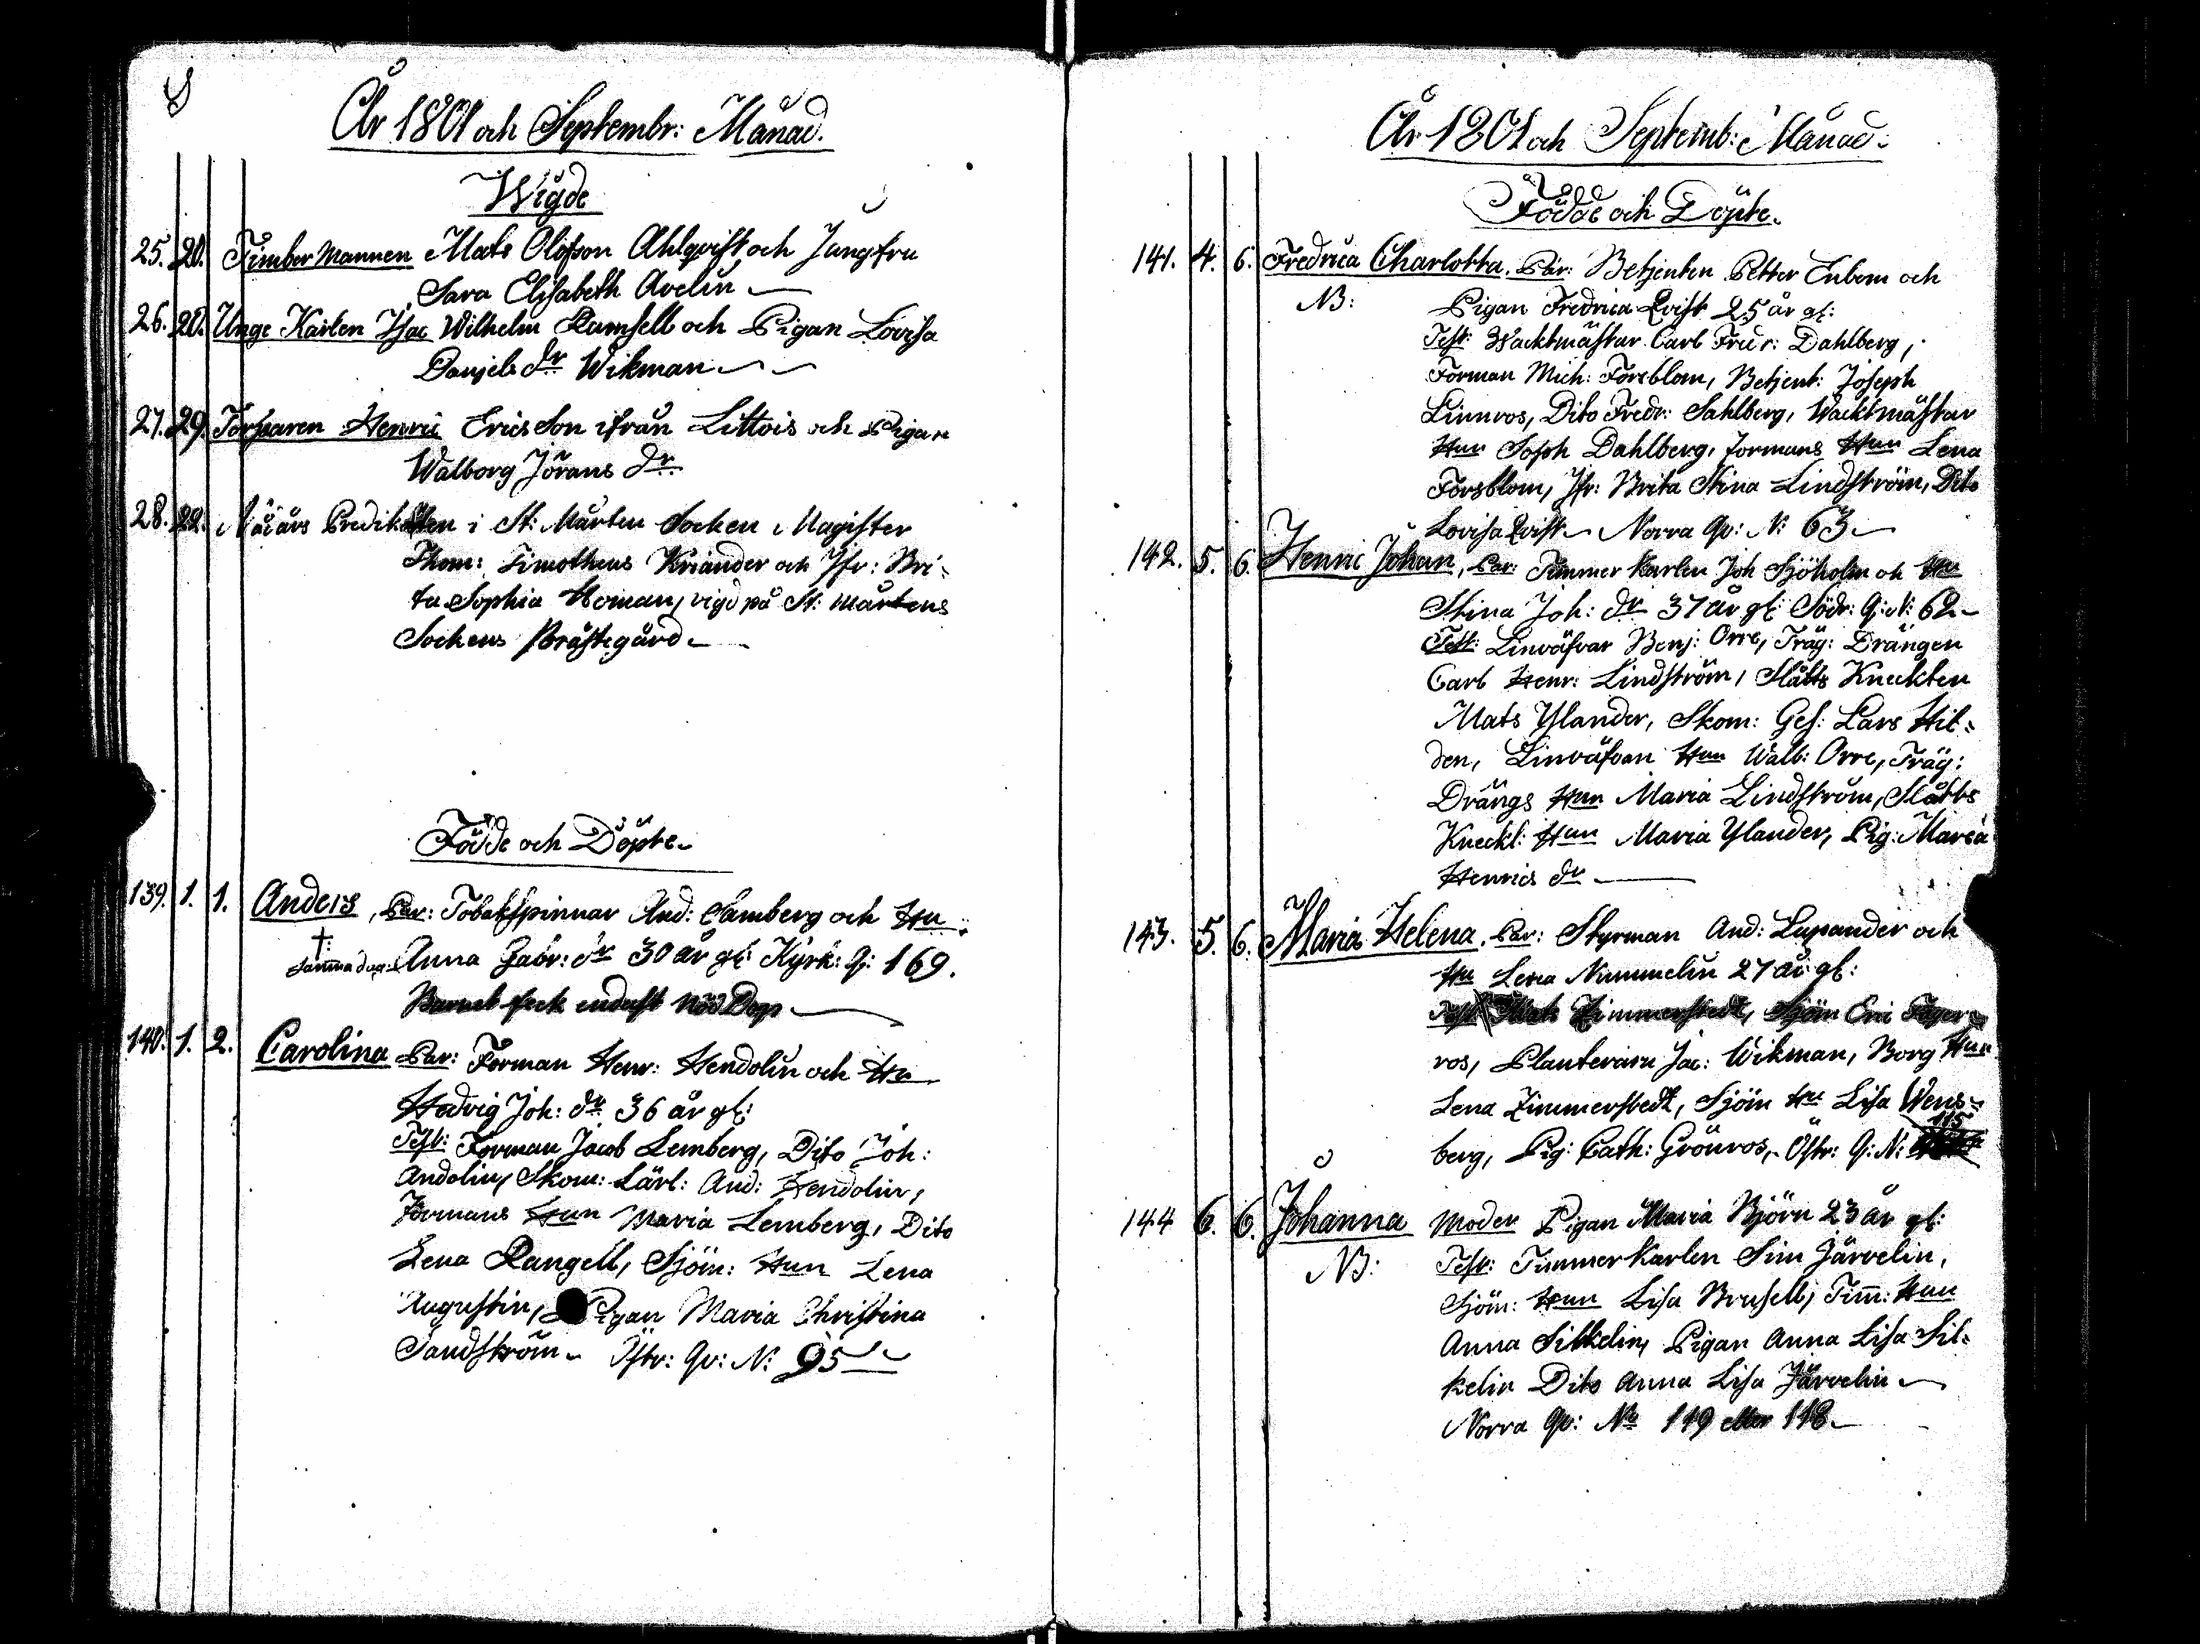 År 1801 och Septembr: Månad.
Wigde
25. 20. Timber Mannen Mats Olofson Ahlqvist och Jungfru
Sara Elisabeth Avelin
26. 20. Unge Karlen Isac Wilhelm Ramsell och Pigan Lovisa
Daniels dr Wikman
27. 29. Torparen Henric Ericsson ifrån Littois och Pigan
Walborg Jörans dr
28. 29. Nådårs Predikanten i St: Mårten Socken Magister
Thom: Timotheus Kriander och Jfr: Bri-
ta Sophia Homan, vigd på St: Mårtens
Sockens Prästegård
Födde och Döpte
139. 1. 1. Anders, Par: Tobakspinnar And: Lamberg och Hu:
† samma dag. Anna Gabr: dr 30 år gl: Kyrk: Q: 169.
Barnet feck endast nöd Dop
140. 1. 2. Carolina Par: Forman Henr: Hendolin och Hu
Hedvig Joh: dr 36 år gl:
Test: Forman Jacob Lemberg, Dito Joh:
Andolin, Skom: Lärl: And: Hendolin,
Formans Hun Maria Lemberg, Dito
Lena Rangell, Sjöm: Hun Lena
Augustin, Pigan Maria Christina
Sandström Östr: Qv: N: 95
År 1801 och Septemb: Månad:
Födde och Döpte
141. 4. 6. Fredrica Charlotta. Par: Betjenten Petter Enbom och
NB: Pigan Fredrica Qvist 25 år gl:
Test: Wacktmästar Carl Fredr: Dahlberg,
Forman Mich: Forsblom, Betjent: Joseph
Linnros, Dito Fredr: Sahlberg, Wacktmästar
Hun Soph Dahlberg, Formans Hun Lena
Forsblom, Jfr: Brita Stina Lindström, Dito
Lovisa Qvist Norra Qv: N: 63
142. 5. 6. Henric Johan, Par: Timmer Karlen Joh Sjöholm och Hu
Stina Joh: dr 37 år gl: Södr: Q: N: 62
Test: Linväfvar Benj: Orre, Träg: Drängen
Carl Henr: Lindström, Slåtts Knecklten
Mats Ylander, Skom: Ges: Lars Hil-
den, Linväfvan Hun Walb: Orre, Träg:
Drängs Hun Maria Lindström, Slåtts
Kneckt: Hun Maria Ylander, Pig: Maria
Henrics dr
143. 5. 6. Maria Helena. Par: Styrman And: Lupander och
Hu Lena Nummelin 27 år gl:
Test: Zimmerstedt, Sjöm Eric Fager-
ros, Planteraren Jac: Wikman, Borg Hun
Lena Zimmerstedt, Sjöm Hu Lisa Wens-
berg, Pig: Cath: Grönros, Östr: Q: N: 115
144 6. 6. Johanna Moder Pigan Maria Björn 23 år gl:
NB: Test: Timmer Karlen Sim Järvelin,
Sjöm: Hun Lisa Brusell, Tim: Hun
Anna Silkelin, Pigan Anna Lisa Sil-
kelin Dito Anna Lisa Järvelin
Norra Qv: No 119 eller 118